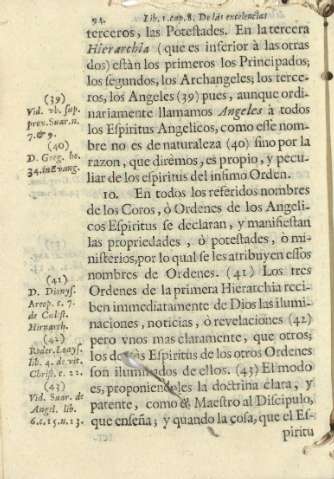 94. Lib. 1. cap. 8. De las excelencias
terceros, las Potestades. En la tercera
Hierarchia (que es inferior à las otras
dos) estàn los primeros los Principados;
los segundos, los Archangeles; los terce-
ros, los Angeles (39) pues, aunque ordi-
nariamente llamamos Angeles à todos
los Espiritus Angelicos, como esse nom-
bre no es de naturaleza (40) sino por la
razon, que dirèmos, es propio, y pecu-
liar de los espiritus del infimo Orden.
10. En todos los referidos nombres
de los Coros, ò Ordenes de los Angeli-
cos Espiritus se declaran, y manifiestan
las propriedades, ò potestades, ò mi-
nisterios, por lo qual se les atribuyen essos
nombres de Ordenes. (41) Los tres
Ordenes de la primera Hierarchia reci-
ben immediatamente de Dios las ilumi-
naciones, noticias, ò revelaciones (42)
pero vnos mas claramente, que otros;
los Espiritus de los otros Ordenes
son iluminados de ellos. (43) El modo
es, proponiendoles la doctrina clara, y
patente, como el Maestro al Discipulo,
que enseña; y quando la cosa, que el Es-
piritu
(39)
Vid. vb. sup.
prox. Suar. n.
7. & 9.
(40)
D. Greg. ho.
34. in Evang.
(41)
D. Dionys.
Areop. c. 7.
de Cælest.
Hierarch.
(42)
lib. 4. de vit.
Christ. c. 22.
(43)
Vid. Suar. de
Angel. lib.
6. c. 15. n. 13.